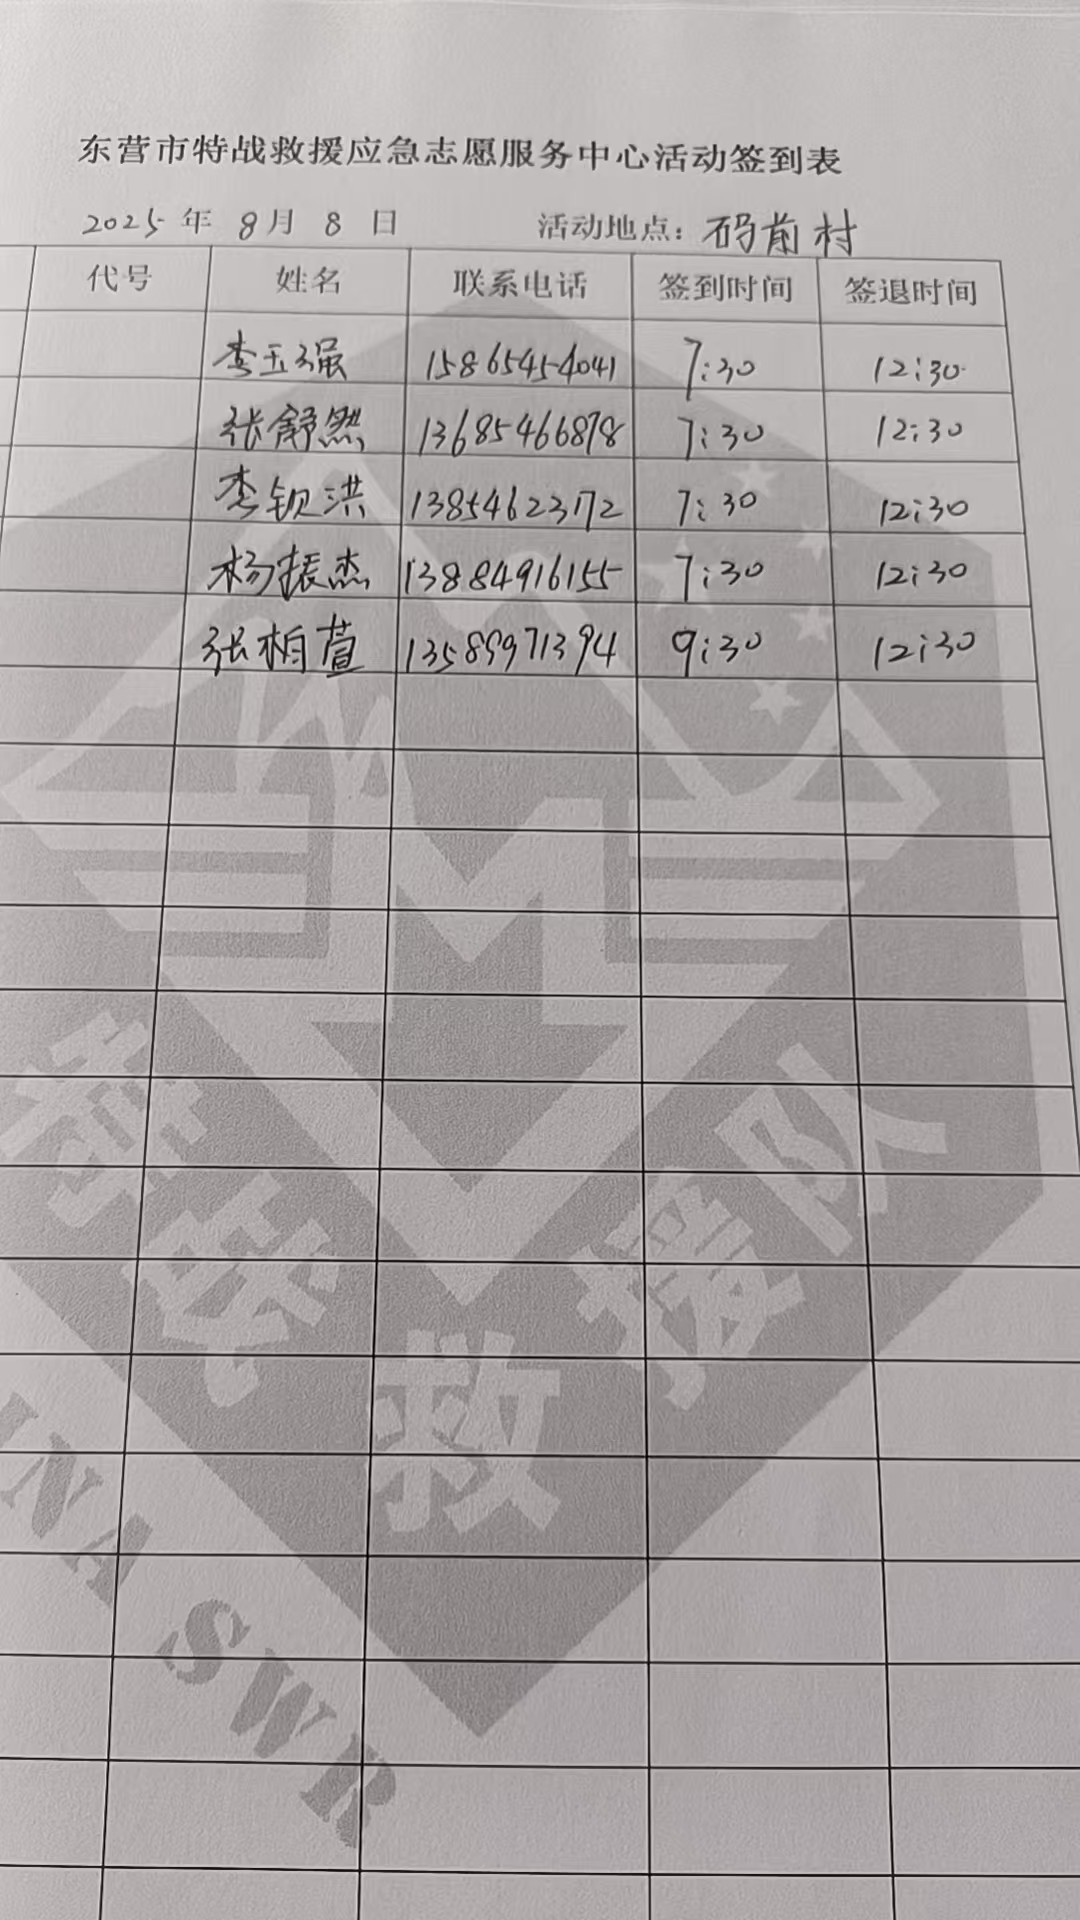 东营市特战救援应急志愿服务中心活动签到表
2025 年 8 月 8 日 活动地点：码前村
代号 姓名 联系电话 签到时间 签退时间
李玉强 15865454041 7:30 12:30
张舒然 13685466878 7:30 12:30
李钡洪 13854623172 7:30 12:30
杨振杰 13884916155 7:30 12:30
张柏萱 13589971394 9:30 12:30
特战救援队
INA SWR